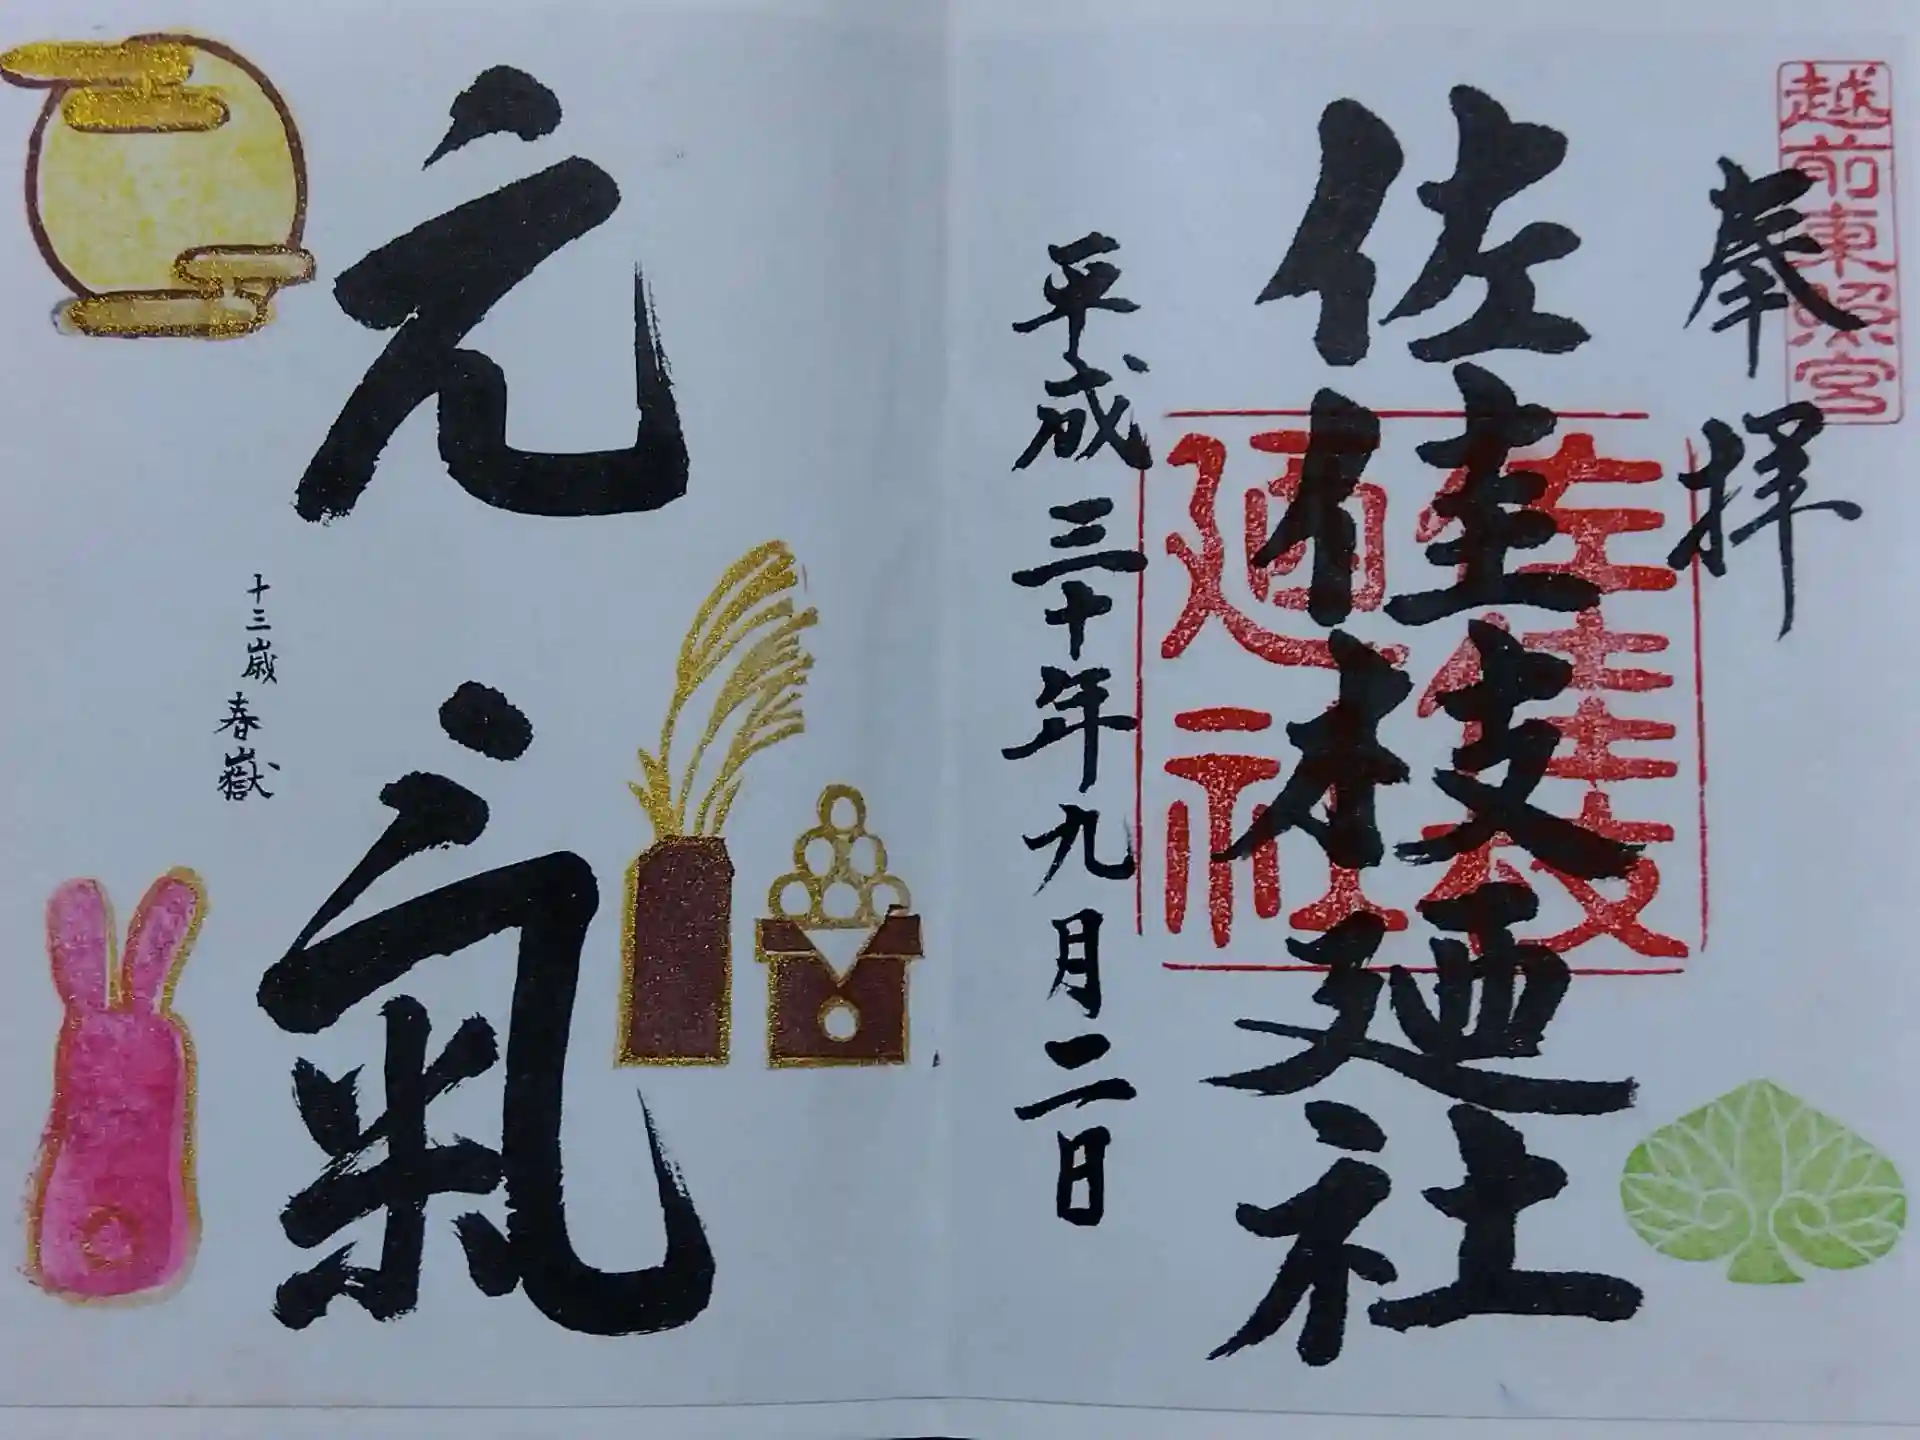 越前東照宮
奉拝
佐佳枝廼社
佐佳枝
廼社
平成三十年九月二日
元氣
十三歳 春嶽